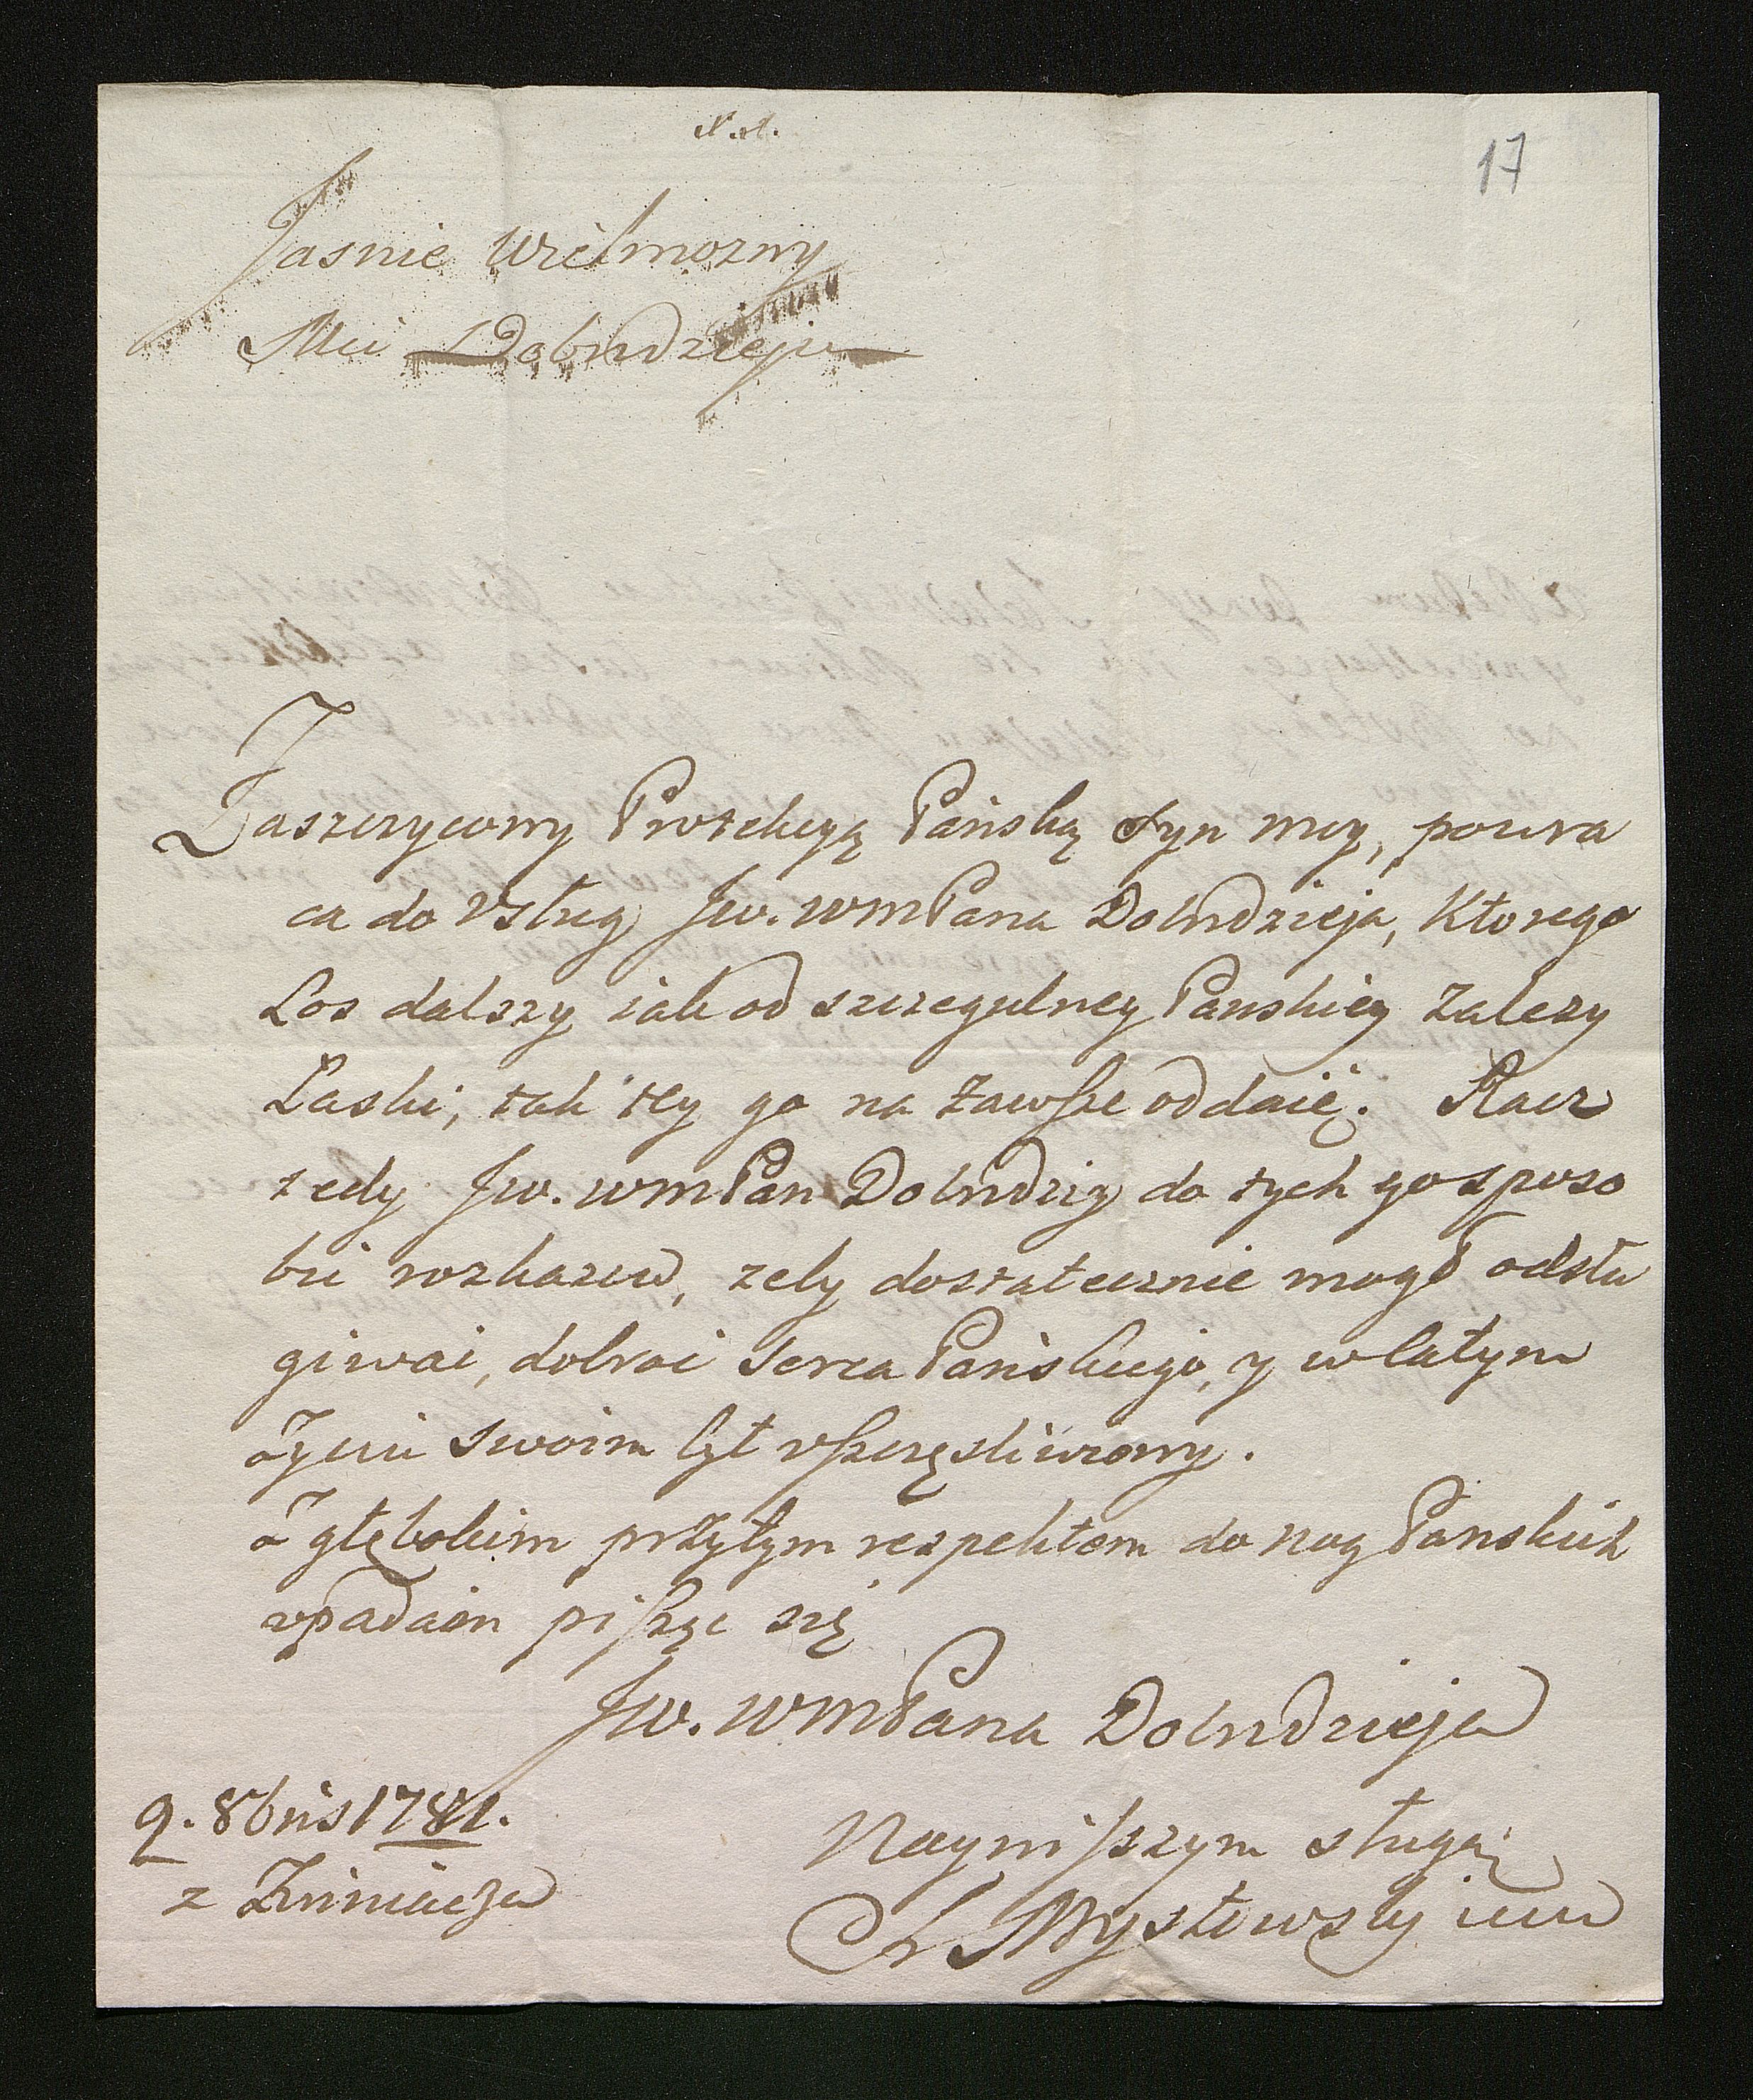 N. 1.
17
Jasnie Wielmozny
Mci Dobrodzieju
Zaszczycony Protekcyą Pańską Syn moy, powra
ca do Vsług Jw. WMPana Dobrdzieja, Ktorego
Los dalszy iak od szczegulney Panskiey zalezy
Łaski, tak tey go na zawsze oddaię. Racz
tedy Jw. WMPan Dobrdziey do tych go sposo
bić rozkazow, zeby dostatecznie mogł odsłu
giwać, dobroć serca Pańskiego, y w całym
Zyciu swoim był vszczęsliwiony.
Z głębokim przytym respektem do nog Panskich
vpadam piszęc się
Jw. WMPana Dobrdzieja
9. 8bris 1781.
Nayniszszym sługą